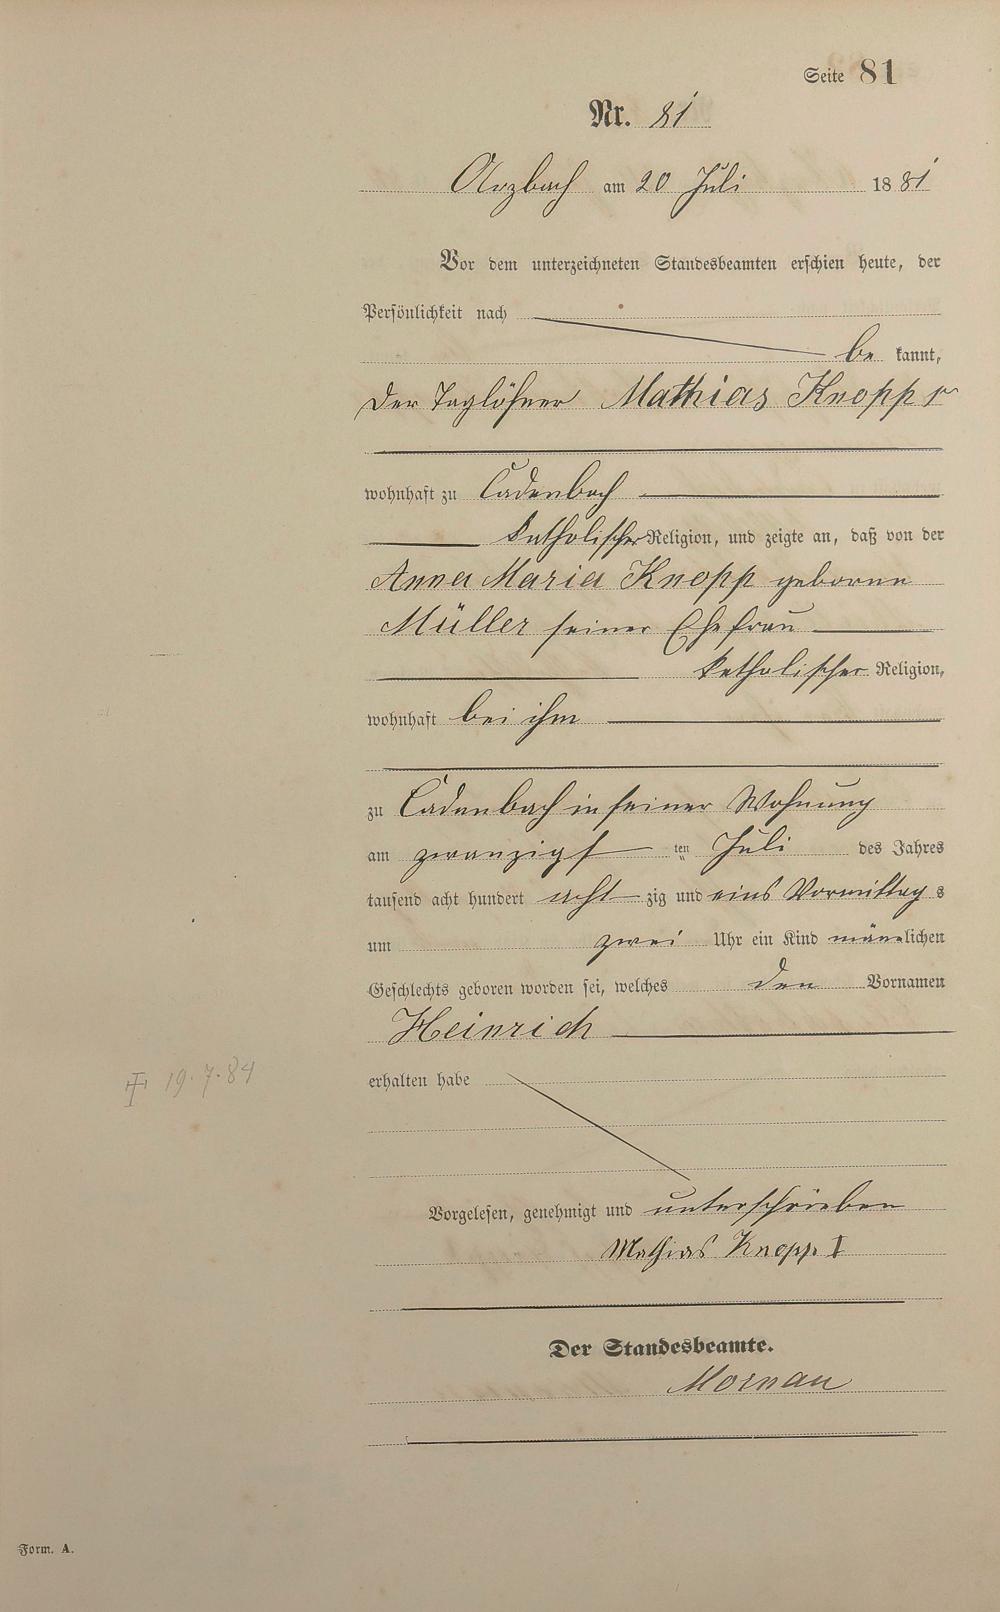 Seite 81
Nr. 81
Arzbach am 20 Juli 1881
Vor dem unterzeichneten Standesbeamten erschien heute, der
Persönlichkeit nach
be kannt,
der Taglöhner Mathias Knopp I
wohnhaft zu Cadenbach
katholischer Religion, und zeigte an, daß von der
Anna Maria Knopp geborne
Müller seiner Ehefrau
katholischer Religion,
wohnhaft bei ihm
zu Cadenbach in seiner Wohnung
am zwanzigsten Juli des Jahres
tausend acht hundert achtzig und eins Vormittags
um zwei Uhr ein Kind männlichen
Geschlechts geboren worden sei, welches den Vornamen
Heinrich
erhalten habe
† 19.7.84
Vorgelesen, genehmigt und unterschrieben
Mathias Knopp I
Der Standesbeamte.
Mornau
Form. A.